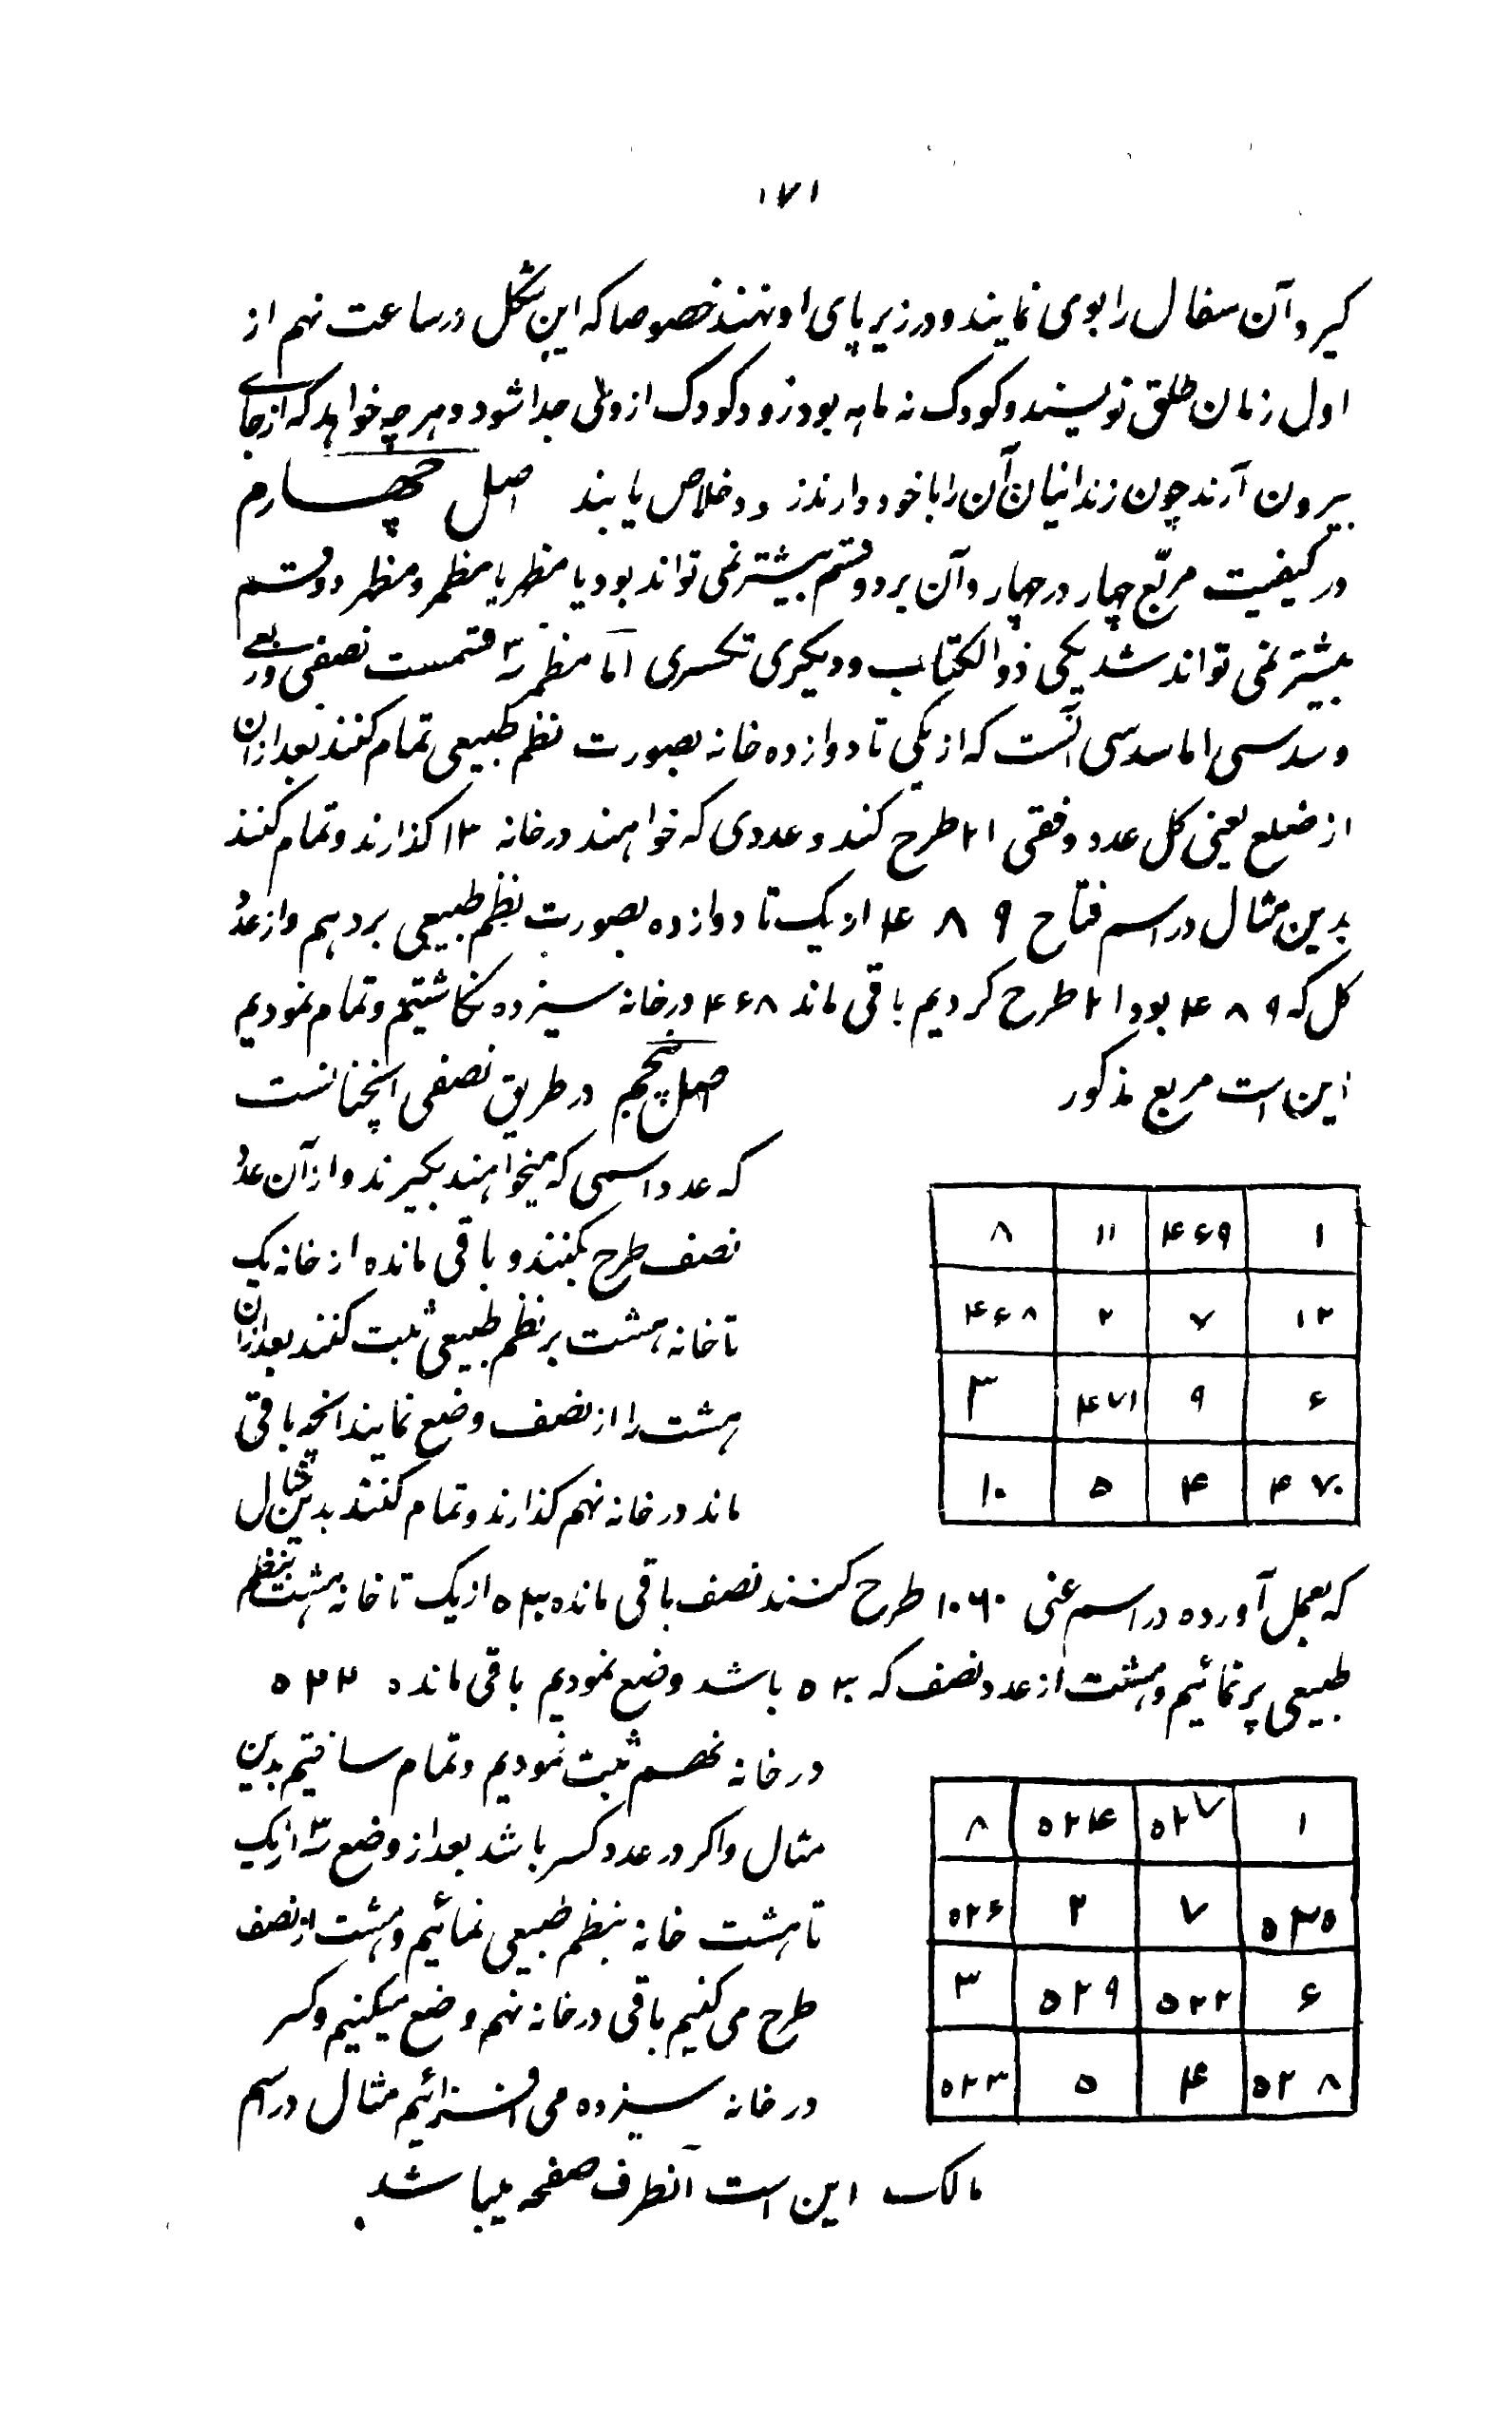 ۱۷۱
گیرد آن سفال را بوی نمایند و در زیر پای او نهند خصوصا که این شکل در ساعت نهم از
اول زمان طلق نویسند و کودک نه ماهه بود زود کودک از وی جدا شود و هر چه خواهد که از جای
بیرون آرند چون زندانیان آن را با خود دارند زود خلاص یابند اصل چهارم
در کیفیت مربّع چهار در چهار و آن بر دو قسم بیشتر نمی تواند بود یا مظهر یا مضمر و مظهر دو قسم
بیشتر نمی تواند شد یکی ذوالکتاب و دیگری تکسیری اما مضمر ۳ قسمست نصفی و ربعی
و سدسی اما سدسی آنست که از یکی تا دوازده خانه بصورت نظم طبیعی تمام کنند بعد از آن
از ضلع یعنی کل عدد وفقی ۲۱ طرح کند و عددی که خواهند در خانه ۱۳ گذارند و تمام کنند
بدین مثال در اسم فتاح ۴۸۹ از یک تا دوازده بصورت نظم طبیعی بردیم و از عدد
کل که ۴۸۹ بود ۲۱ طرح کردیم باقی ماند ۴۶۸ در خانه سیزده نگاشتیم و تمام نمودیم
این است مربع مذکور
اصل پنجم در طریق نصفی انچنانست
که عدد اسمی که میخواهند بگیرند و از آن عدد
نصف طرح بکنند و باقی مانده از خانه یک
تا خانه هشت بر نظم طبیعی ثبت کنند بعد از آن
هشت را از نصف وضع نمایند انچه باقی
ماند در خانه نهم گذارند و تمام کنند بدین مثال
۸ ۱۱ ۴۶۹ ۱
۴۶۸ ۲ ۷ ۱۲
۳ ۴۷۱ ۹ ۶
۱۰ ۵ ۴ ۴۷۰
که بعمل آورده در اسم غنی ۱۰۶۰ طرح کنند نصف باقی مانده ۵۳۰ از یک تا خانه هشت بنظم
طبیعی پر نمائیم و هشت از عدد نصف که ۵۳۰ باشد وضع نمودیم باقی مانده ۵۲۲
در خانه نهم ثبت نمودیم و تمام ساختیم بدین
مثال و اگر در عدد کسر باشد بعد از وضع ۳ از یک
تا هشت خانه بنظم طبیعی نمائیم و هشت از نصف
طرح می کنیم باقی در خانه نهم وضع میکنیم و کسر
در خانه سیزده می افزائیم مثال در اسم
۸ ۵۲۴ ۵۲۷ ۱
۵۲۶ ۲ ۷ ۵۲۵
۳ ۵۲۹ ۵۲۲ ۶
۵۲۳ ۵ ۴ ۵۲۸
مالک این است آنطرف صفحه میباشد